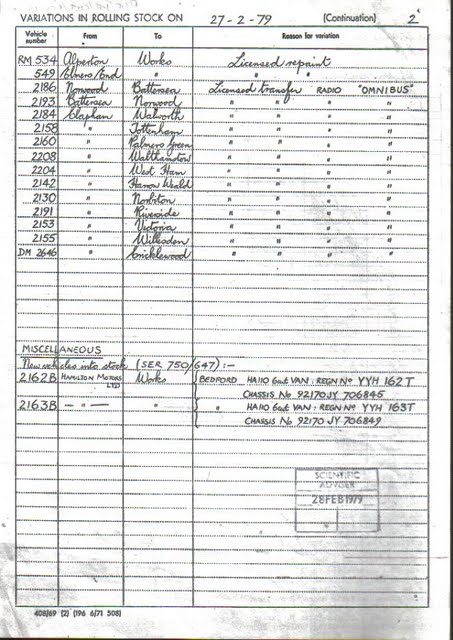 VARIATIONS IN ROLLING STOCK ON 27-2-79 (Continuation) 2
Vehicle number From To Reason for variation
RM 534 Alperton Works Licensed repaint
549 Elmers/End " " "
2186 Norwood Battersea Licensed transfer RADIO "OMNIBUS"
2193 Battersea Norwood " " " "
2184 Clapham Walworth " " " "
2158 " Tottenham " " " "
2160 " Palmers Green " " " "
2208 " Walthamstow " " " "
2204 " West Ham " " " "
2142 " Harrow Weald " " " "
2130 " Norbiton " " " "
2191 " Riverside " " " "
2153 " Victoria " " " "
2155 " Willesden " " " "
DM 2646 " Cricklewood " " " "
MISCELLANEOUS
New vehicles into stock (SER 750/647) :-
2162B HAMILTON MOTORS LTD Works BEDFORD HA110 6cwt VAN : REGN No YYH 162T
CHASSIS No 92170JY 706845
2163B — " — " " HA110 6cwt VAN : REGN No YYH 163T
CHASSIS No 92170 JY 706849
SCIENTIFIC
ADVISER
28 FEB 1979
408/69 (2) (196 6/71 508)